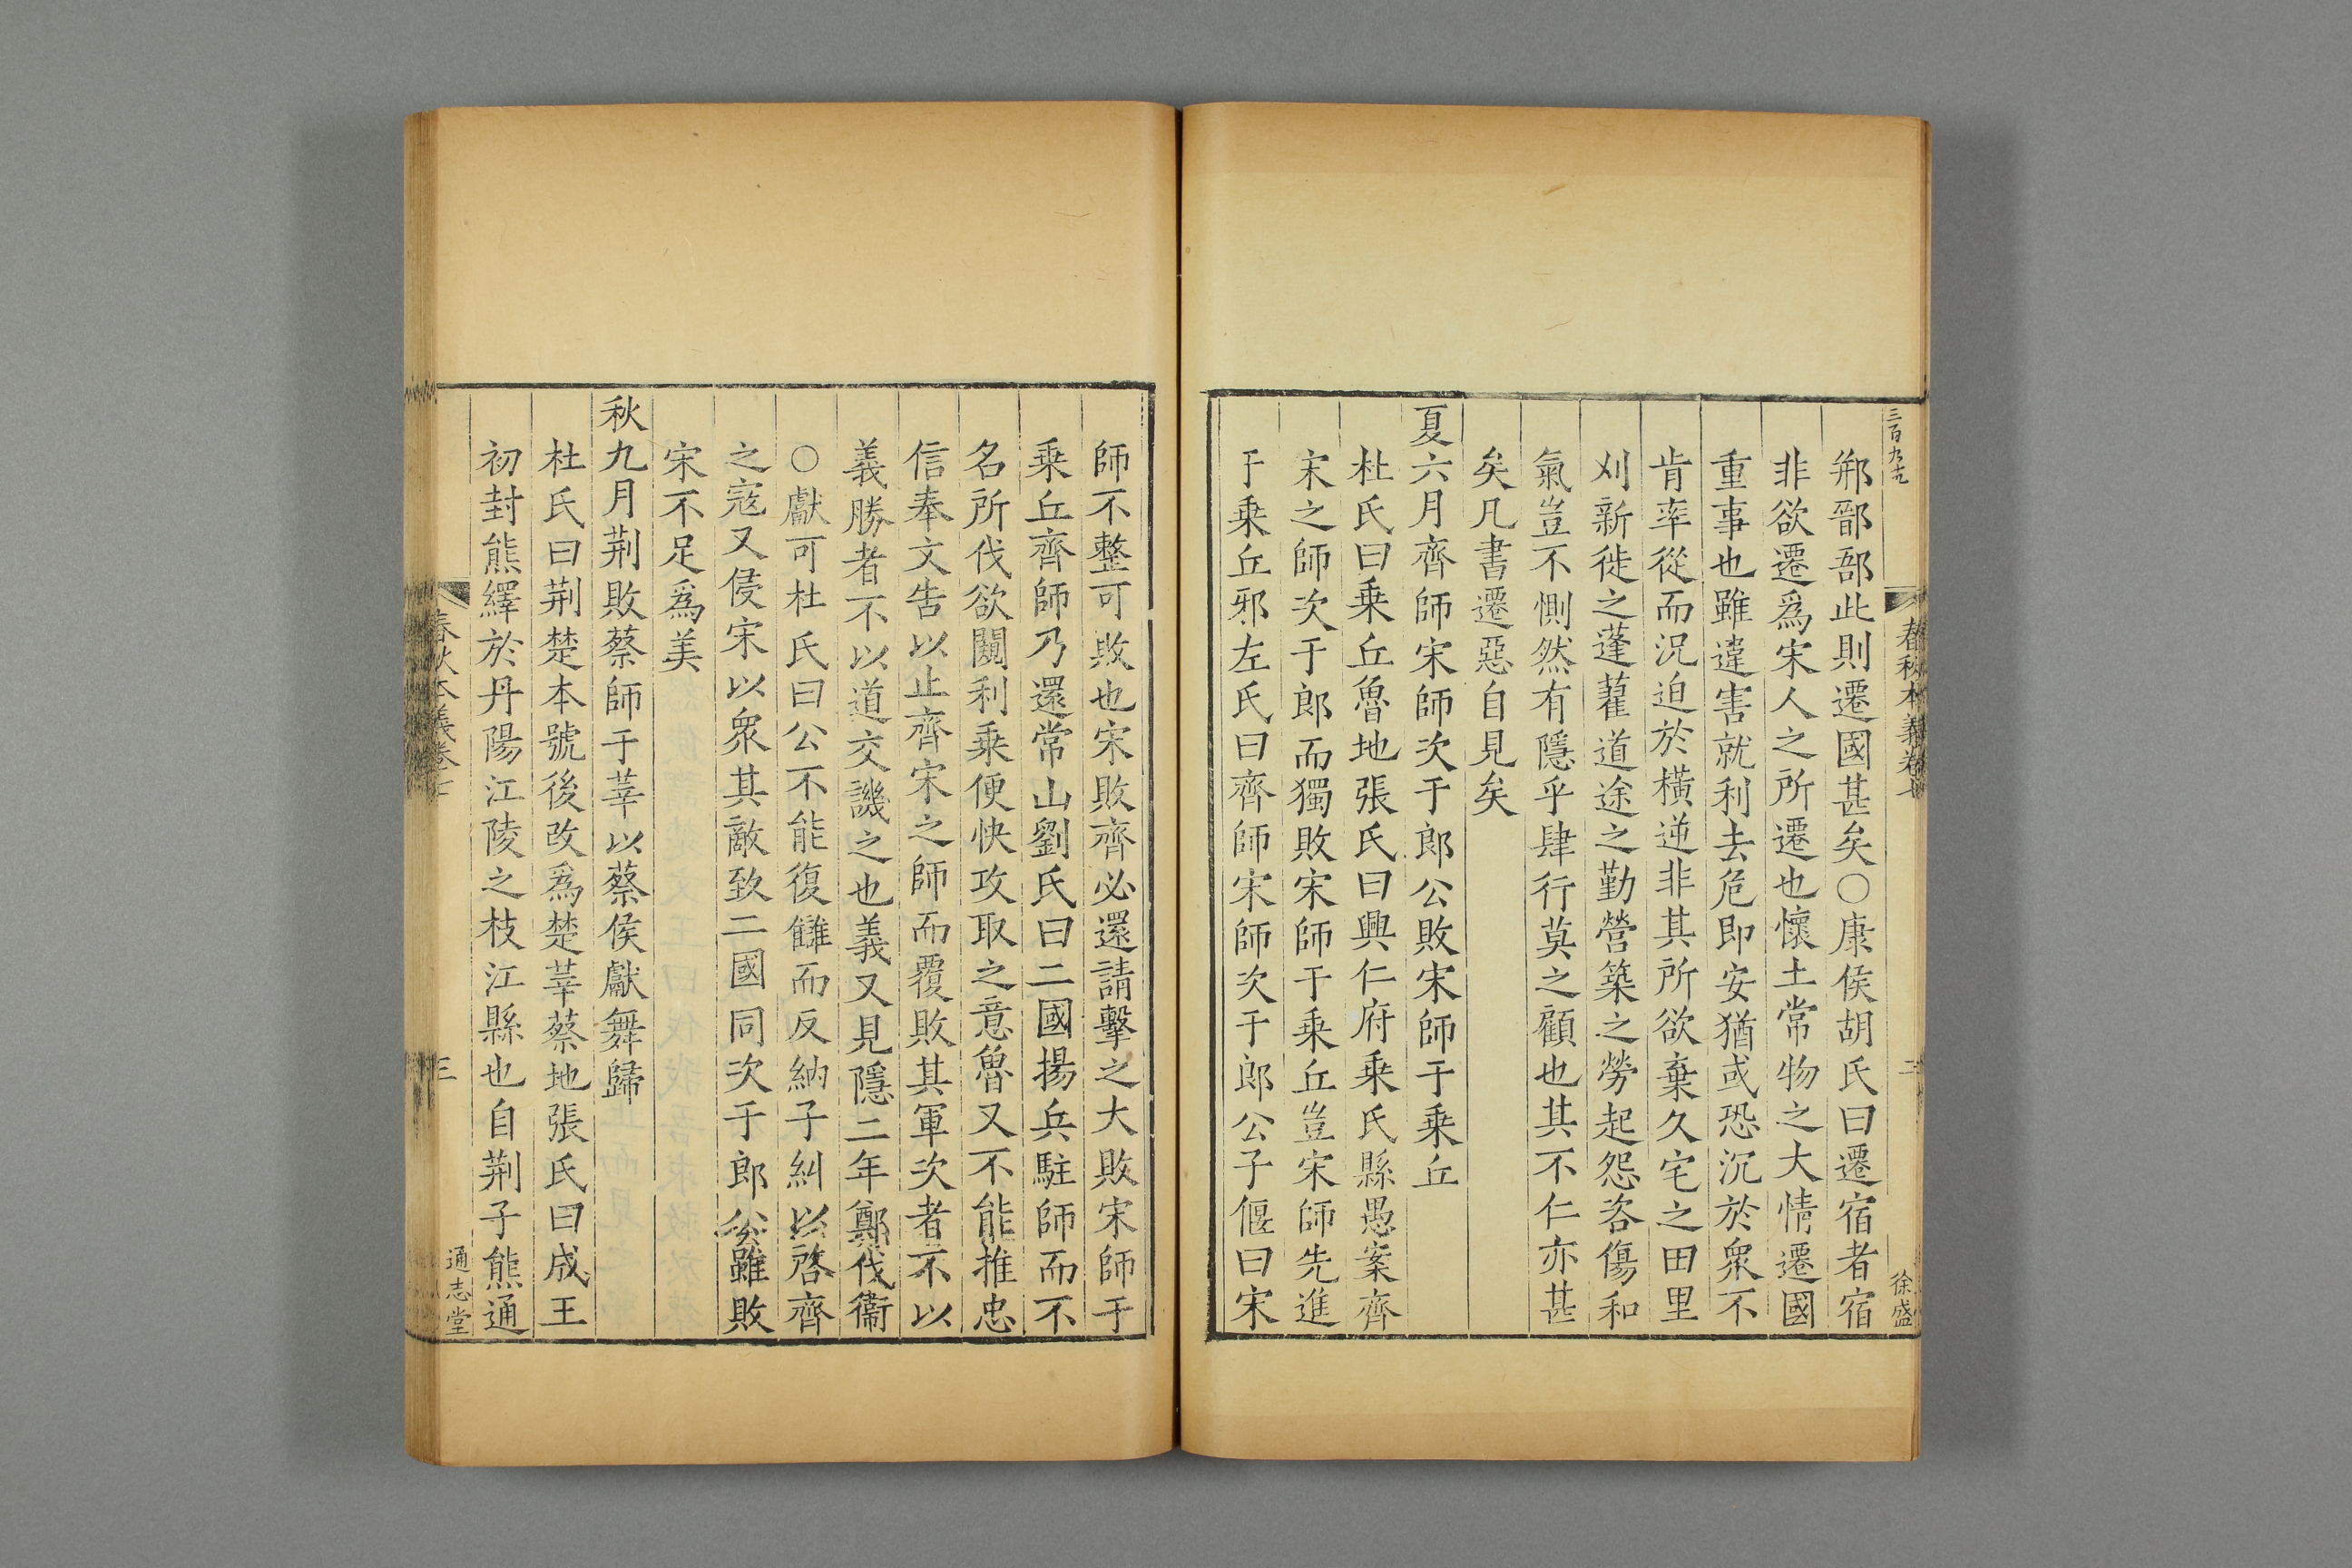 三百九十九
春秋本義卷七
二
徐盛
郱鄑郚此則遷國甚矣○康侯胡氏曰遷宿者宿
非欲遷爲宋人之所遷也懷土常物之大情遷國
重事也雖違害就利去危即安猶或恐沉於衆不
肯率從而況迫於橫逆非其所欲棄久宅之田里
刈新徙之蓬藋道途之勤營築之勞起怨咨傷和
氣豈不惻然有隱乎肆行莫之顧也其不仁亦甚
矣凡書遷惡自見矣
夏六月齊師宋師次于郎公敗宋師于乗丘
杜氏曰乗丘魯地張氏曰興仁府乗氏縣愚案齊
宋之師次于郎而獨敗宋師于乗丘豈宋師先進
于乗丘邪左氏曰齊師宋師次于郎公子偃曰宋
師不整可敗也宋敗齊必還請擊之大敗宋師于
乗丘齊師乃還常山劉氏曰二國揚兵駐師而不
名所伐欲闚利乗便快攻取之意魯又不能推忠
信奉文告以止齊宋之師而覆敗其軍次者不以
義勝者不以道交譏之也義又見隱二年鄭伐衞
○獻可杜氏曰公不能復讎而反納子糾以啓齊
之寇又侵宋以衆其敵致二國同次于郎公雖敗
宋不足爲美
秋九月荆敗蔡師于莘以蔡侯獻舞歸
杜氏曰荆楚本號後改爲楚莘蔡地張氏曰成王
初封熊繹於丹陽江陵之枝江縣也自荆子熊通
春秋本義卷七
三
通志堂